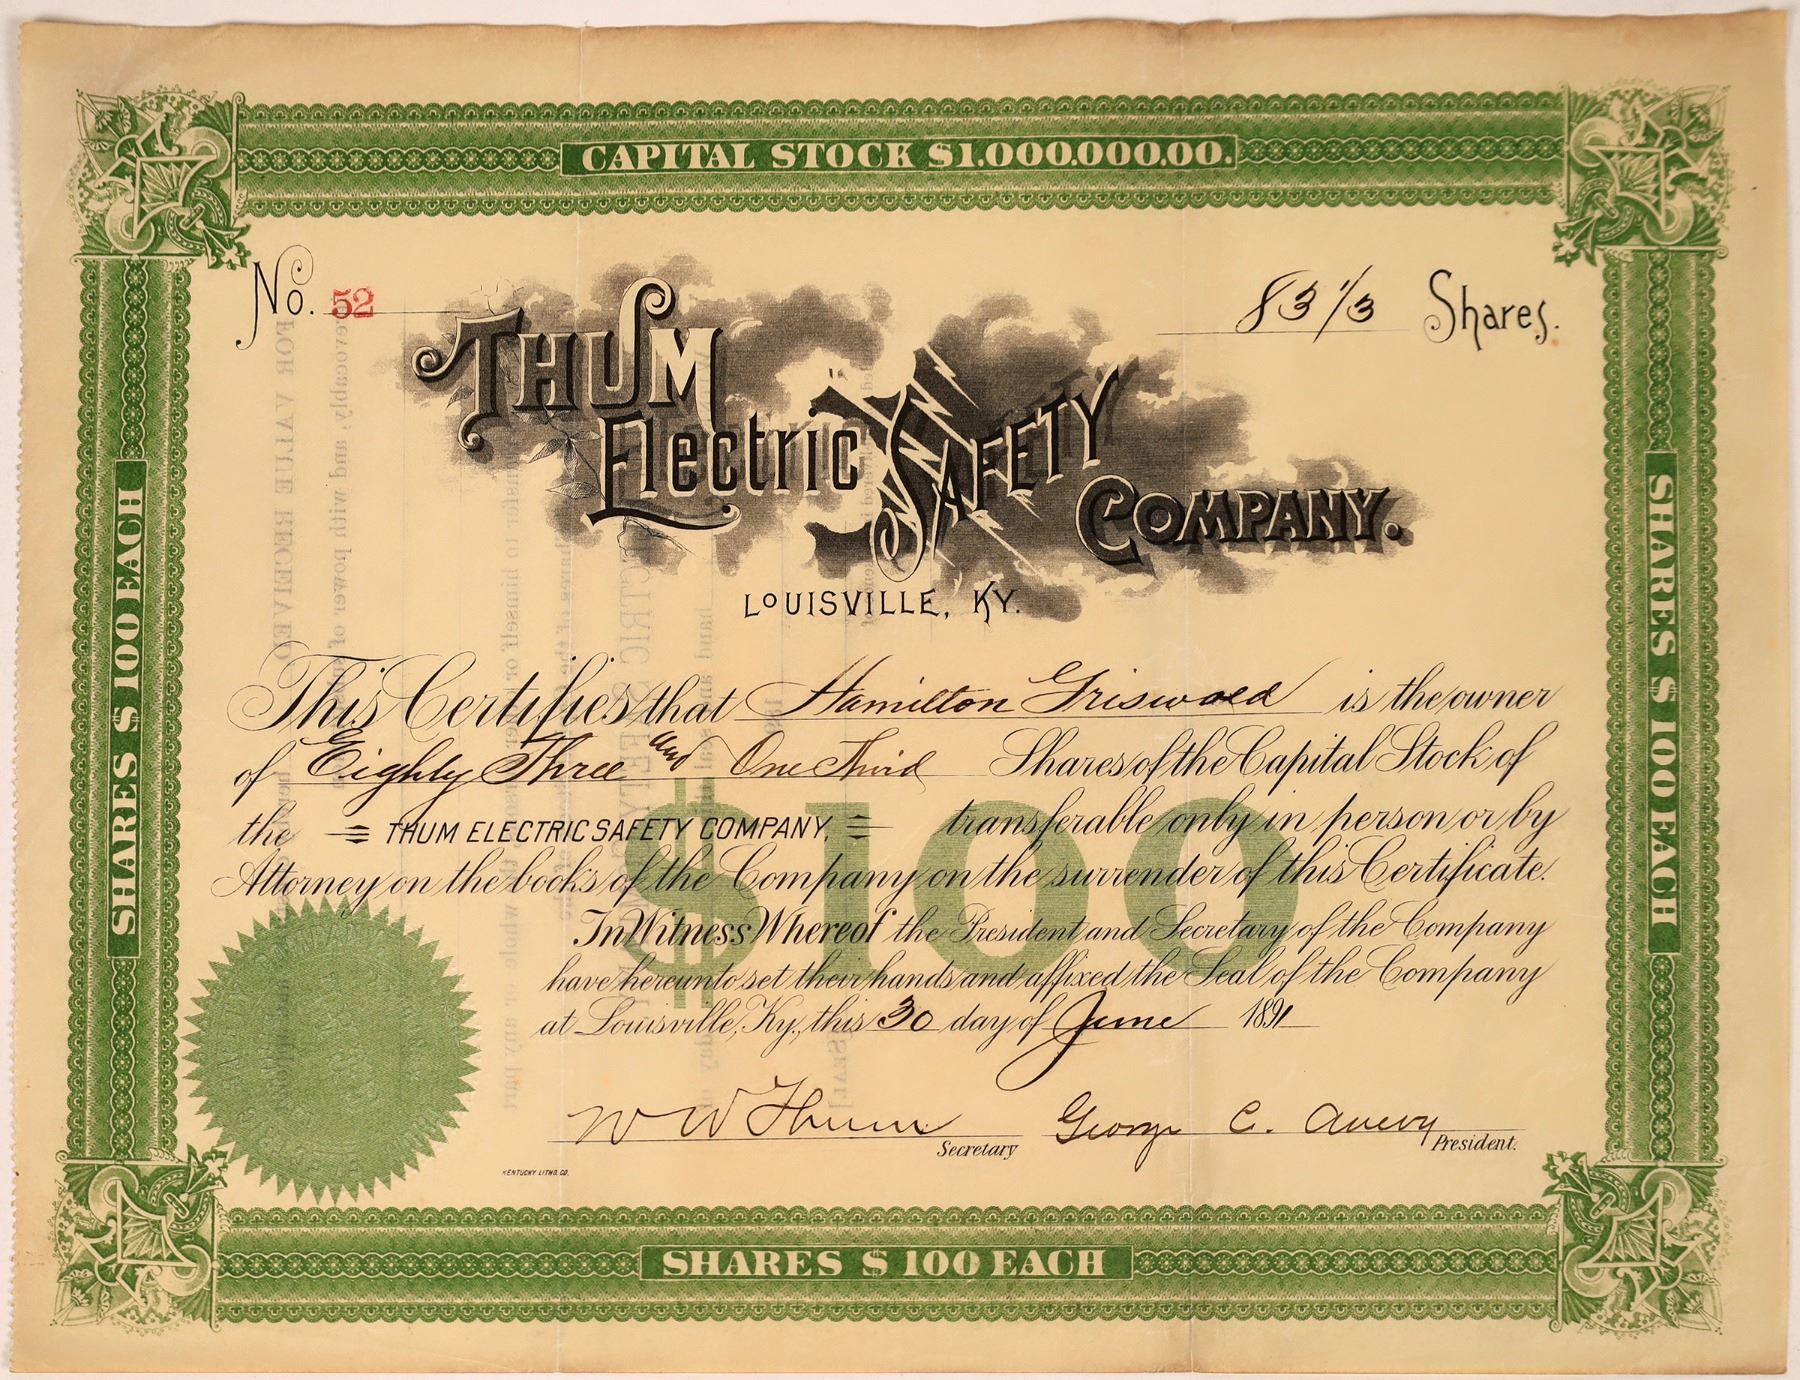 CAPITAL STOCK $1.000.000.00.
No. 52
83 1/3 Shares.
THUM
Electric SAFETY
COMPANY.
LOUISVILLE, KY.
This Certifies that Hamilton Griswold is the owner
of Eighty Three and One Third Shares of the Capital Stock of
the THUM ELECTRIC SAFETY COMPANY, transferable only in person or by
Attorney on the books of the Company on the surrender of this Certificate.
$100
In Witness Whereof the President and Secretary of the Company
have hereunto set their hands and affixed the Seal of the Company
at Louisville, Ky., this 30 day of June 1891
W W Thum Secretary George C. Avery President.
KENTUCKY LITHO. CO.
SHARES $100 EACH
SHARES $100 EACH
SHARES $100 EACH